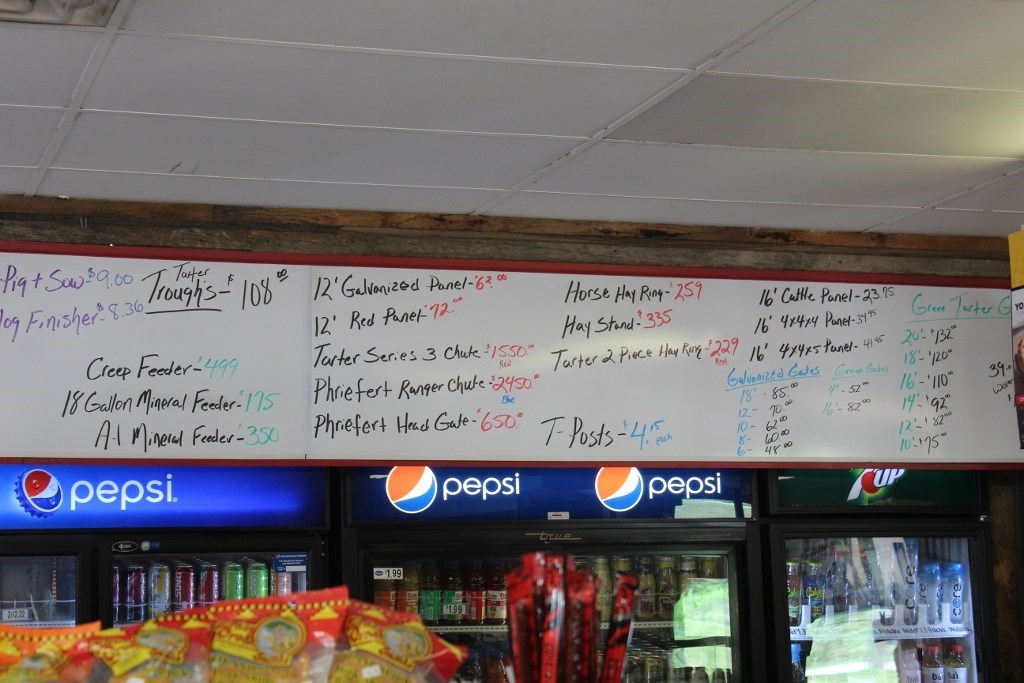 Pig + Sow - $9.00
Hog Finisher - $8.36
Tarter
Troughs - $108.00
Creep Feeder - $499
18 Gallon Mineral Feeder - $175
A-1 Mineral Feeder - $350
12' Galvanized Panel - $62.00
12' Red Panel - $72.00
Tarter Series 3 Chute - $1550.00
Red
Phriefert Ranger Chute - $2450.00
Blue
Phriefert Head Gate - $650.00
Horse Hay Ring - $259
Hay Stand - $335
Tarter 2 Piece Hay Ring - $229
Red
T-Posts - $4.15 each
16' Cattle Panel - 23.75
16' 4x4x4 Panel - 34.95
16' 4x4x5 Panel - 41.95
Galvanized Gates
18' - 85.00
12 - 70.00
10 - 62.00
8 - 60.00
6 - 48.00
Green Gates
4' - 52.00
16' - 82.00
Green Tarter G
20' - $132.00
18' - $120.00
16' - $110.00
14' - $92.00
12' - $82.00
10' - $75.00
39.
pepsi
pepsi
pepsi
7UP
true
$1.99
$1.99
2/$2.22
core
core